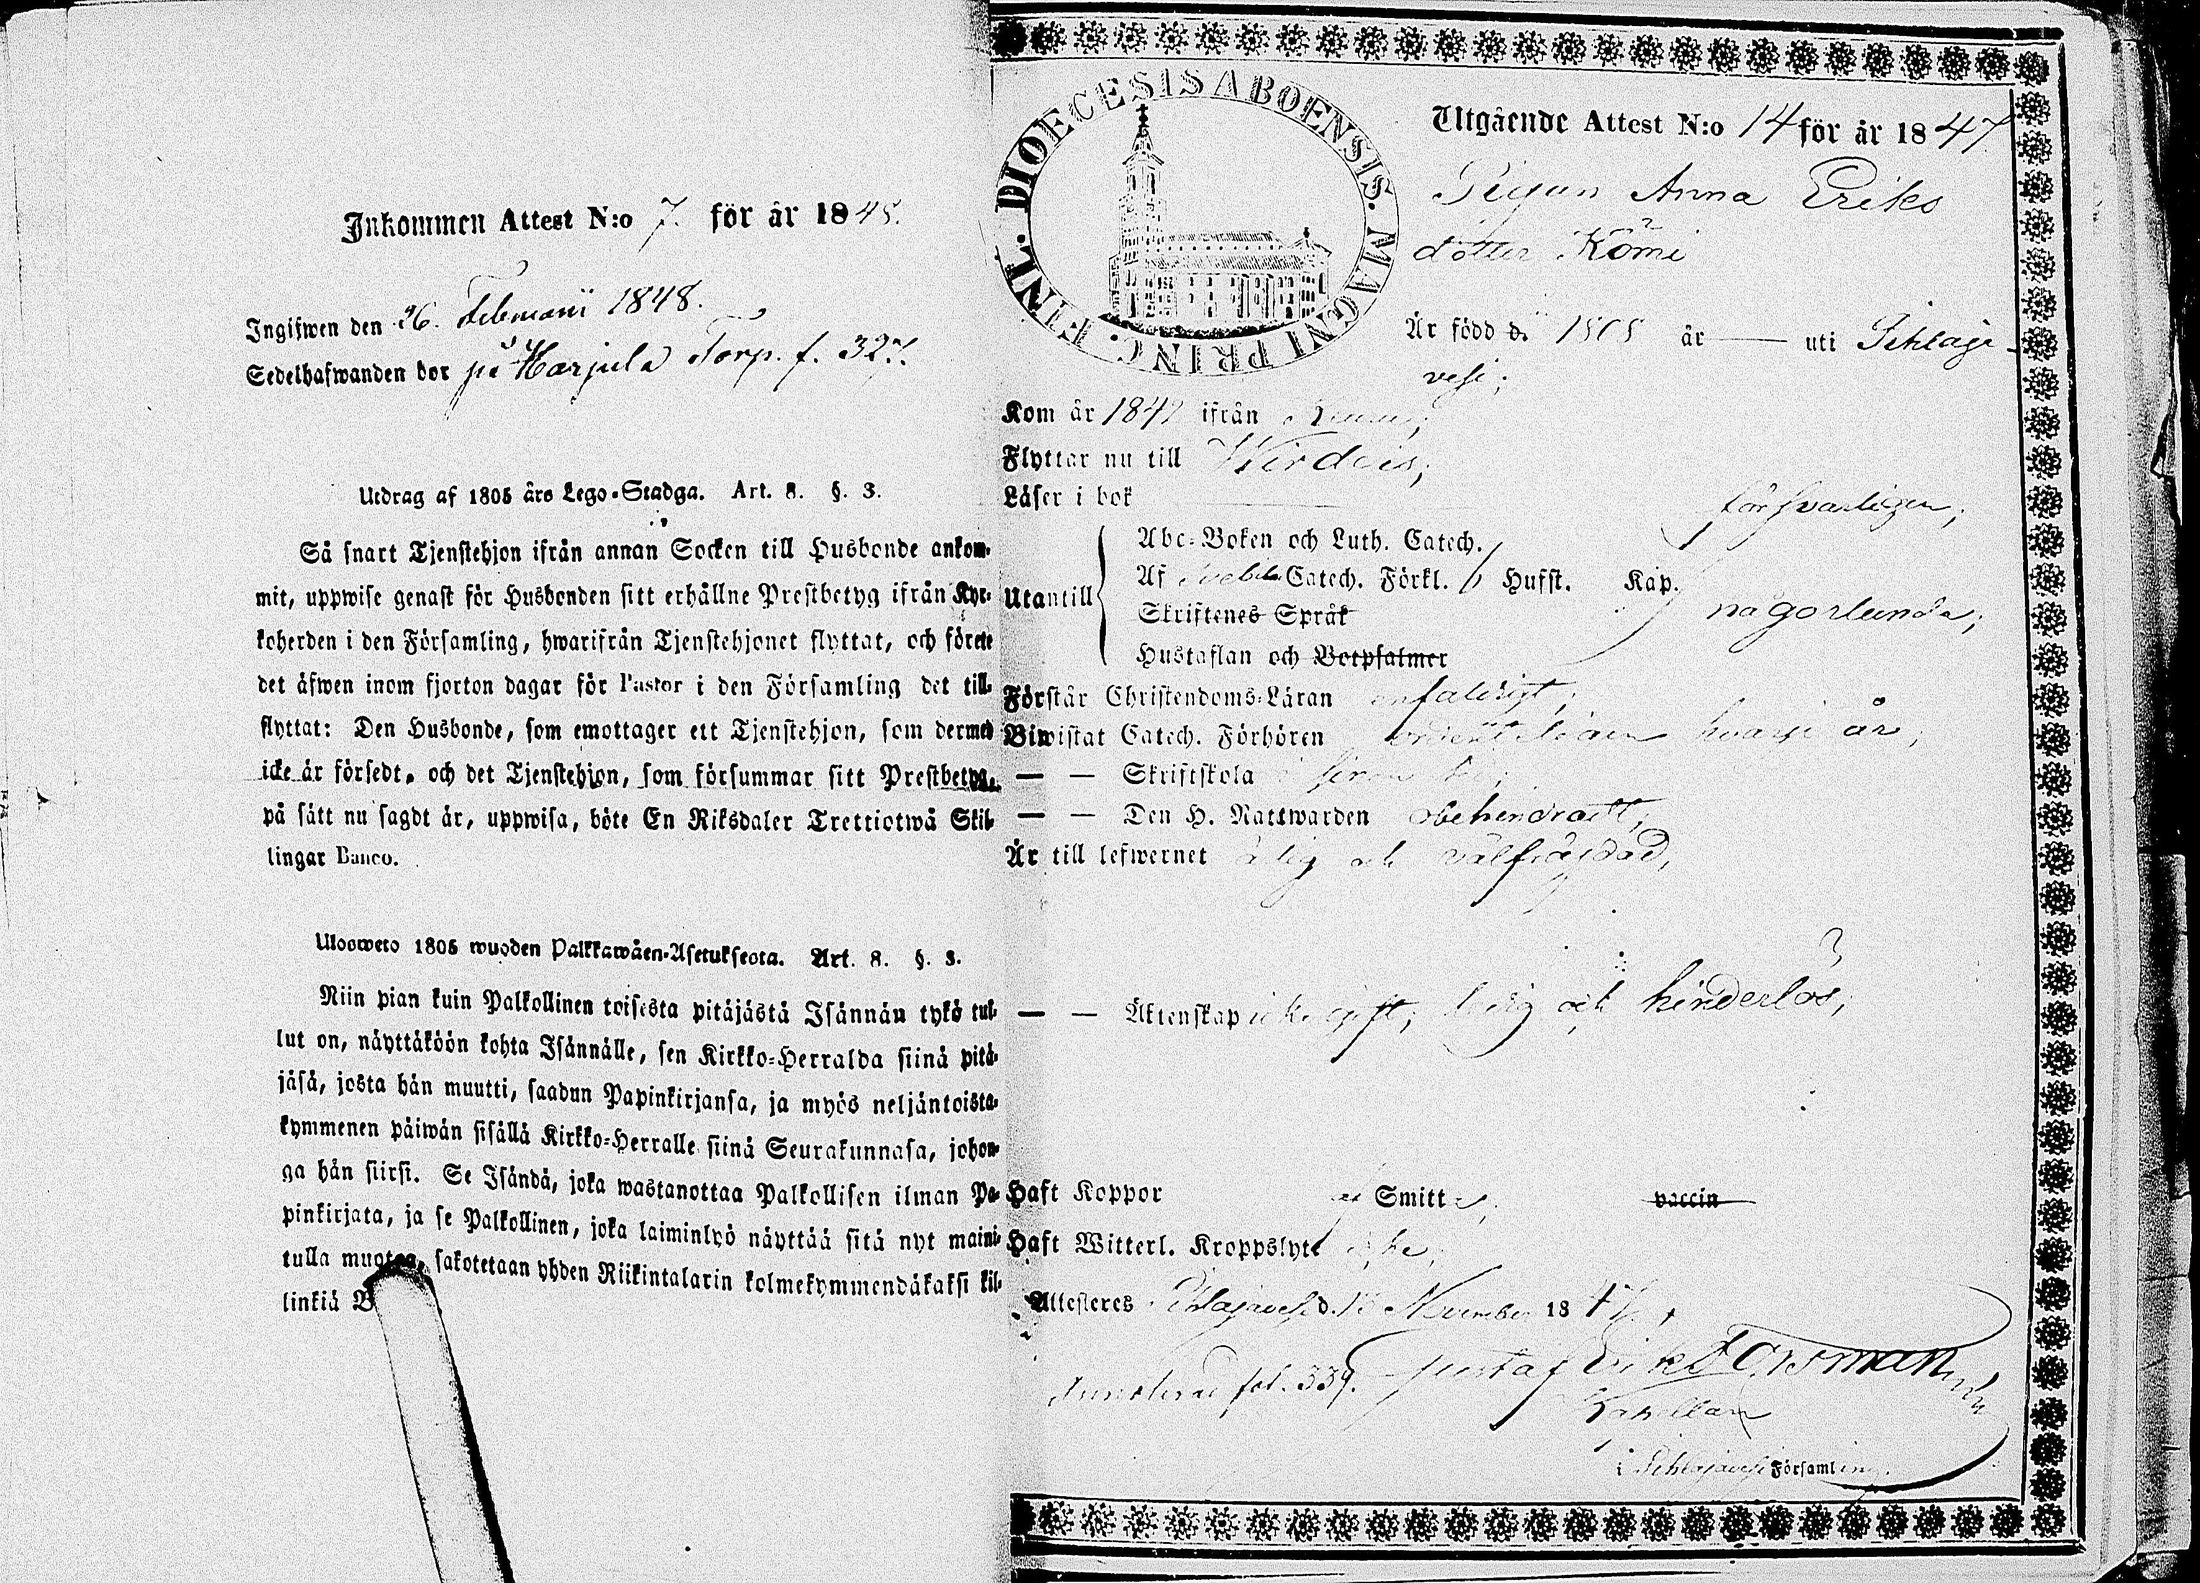 Inkommen Attest N:o 7. för år 1848.
Ingifwen den 26. Februarii 1848.
Sedelhafwanden bor på Harjula Torp. f. 327.
Utdrag af 1805 års Lego-Stadga. Art. 8. §. 3.
Så snart Tjenstehjon ifrån annan Socken till Husbonde ankom-
mit, uppwise genast för Husbonden sitt erhållne Prestbetyg ifrån Kyr-
koherden i den Församling, hwarifrån Tjenstehjonet flyttat, och förete
det äfwen inom fjorton dagar för Pastor i den Församling det till-
flyttat: Den Husbonde, som emottager ett Tjenstehjon, som dermed
icke är försedt, och det Tjenstehjon, som försummar sitt Prestbetyg,
på sätt nu sagdt är, uppwisa, böte En Riksdaler Trettiotwå Skil-
lingar Banco.
Ulosweto 1805 wuoden Palkkawäen-Asetuksesta. Art. 8. §. 3.
Niin pian kuin Palkollinen toisesta pitäjästä Isännän tykö tul-
lut on, näyttäköön kohta Isännälle, sen Kirkko-Herralda siinä pitä-
jäsä, josta hän muutti, saadun Papinkirjansa, ja myös neljäntoista-
kymmenen päiwän sisällä Kirkko-Herralle siinä Seurakunnasa, johon-
ga hän siirsi. Se Isändä, joka wastanottaa Palkollisen ilman Pa-
pinkirjata, ja se Palkollinen, joka laiminlyö näyttää sitä nyt maini-
tulla muotoa, sakotetaan yhden Riikintalarin kolmekymmendäkaksi kil-
linkiä B
FINL. DIOECESIS ABOENSIS. MAGNI PRINC.
Utgående Attest N:o 14 för år 1847
Pigan Anna Eriks
dotter Kömi
Är född d. 1808 år — uti Pihlaja-
vesi;
Kom år 184 ifrån Keuru;
Flyttar nu till Wirdois;
Läser i bok försvarligen;
Utantill
Abc-Boken och Luth. Catech.
Af Svebilii Catech. Förkl. Hufst. Kap.
någorlunda;
Skriftenes Språk
Hustaflan och Botpsalmer
Förstår Christendoms-Läran enfaldigt;
Biwistat Catech. Förhören ordenteligen hvarje år;
— — Skriftskola i sinom tid;
— — Den H. Nattwarden obehindradt;
Är till lefwernet ärlig och välfrägdad,
— — Äktenskap icke gift, ledig och hinderlös;
Haft Koppor af Smitta; vaccin
Haft Witterl. Kroppslyte icke;
Attesteres Pihlajavesi d. November 1847.
Annoterad fol. 339. Gustaf Erik Forsman
Kapellan
i Pihlajavesi Församling.